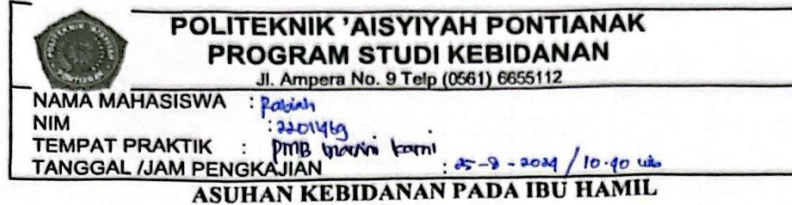 POLITEKNIK 'AISYIYAH PONTIANAK
PROGRAM STUDI KEBIDANAN
Jl. Ampera No. 9 Telp (0561) 6655112
NAMA MAHASISWA : Rabiah
NIM : 2201469
TEMPAT PRAKTIK : PMB
TANGGAL /JAM PENGKAJIAN : 25-8-2024 / 10.40 wib
ASUHAN KEBIDANAN PADA IBU HAMIL